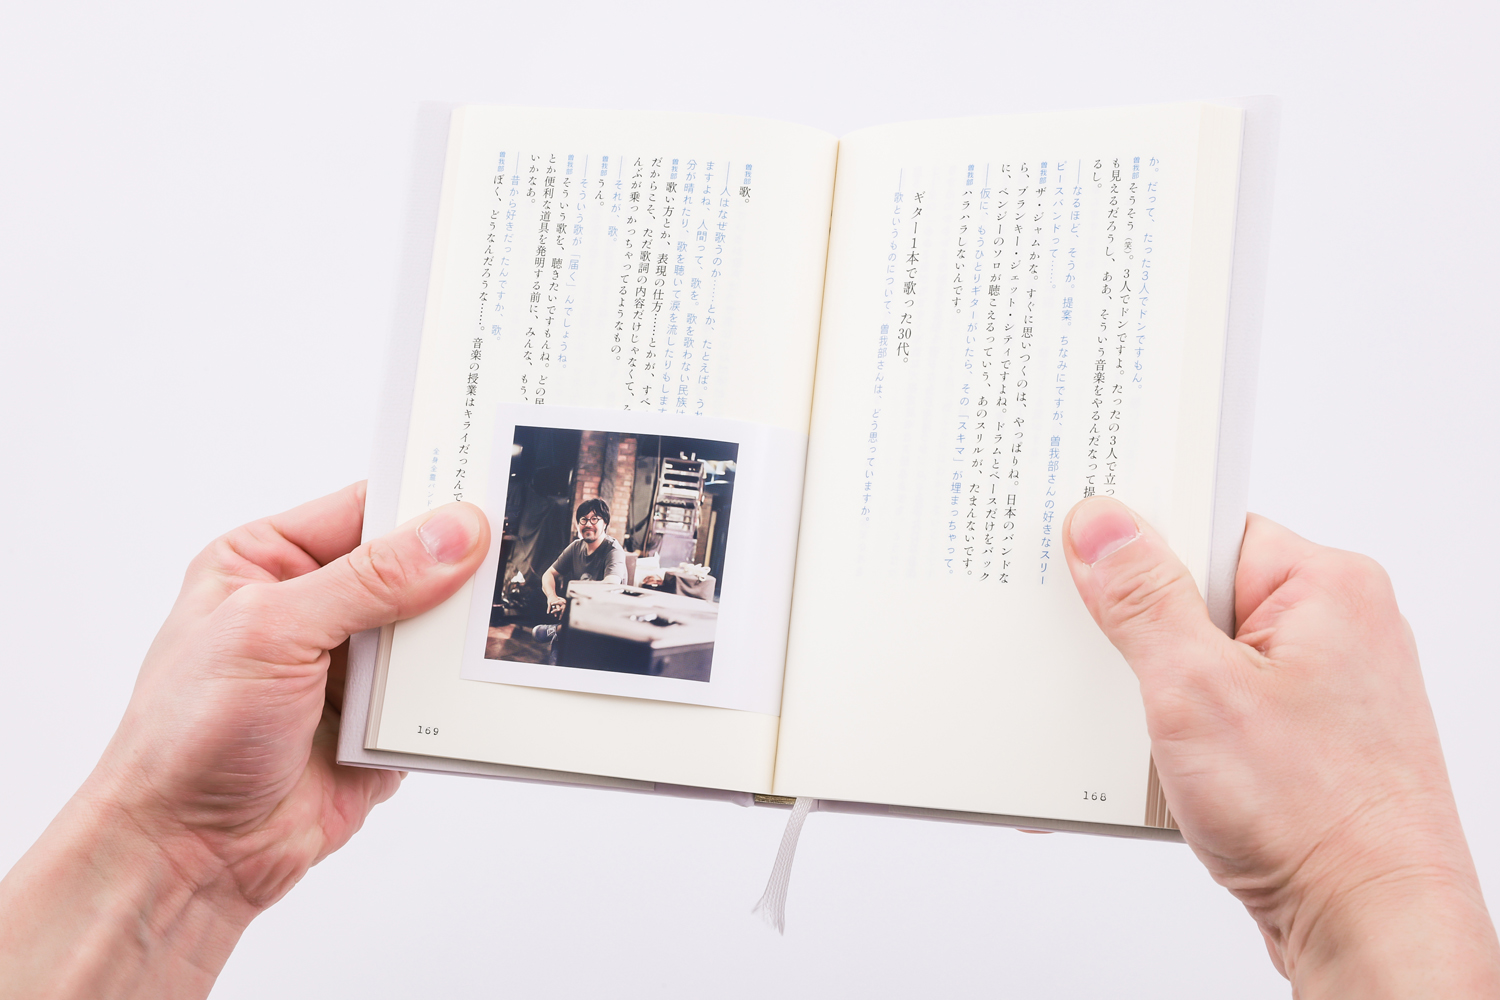 か。だって、たった3人でドンですもん。
曽我部 そうそう(笑)。3人でドンですよ。たったの3人で立っ
も見えるだろうし、ああ、そういう音楽をやるんだなって提
るし。
——なるほど、そうか。提案。ちなみにですが、曽我部さんの好きなスリー
ピースバンドって……。
曽我部 ザ・ジャムかな。すぐに思いつくのは、やっぱりね。日本のバンドな
ら、ブランキー・ジェット・シティですよね。ドラムとベースだけをバック
に、ベンジーのソロが聴こえるっていう、あのスリルが、たまんないです。
——仮に、もうひとりギターがいたら、その「スキマ」が埋まっちゃって。
曽我部 ハラハラしないんです。
ギター1本で歌った30代。
——歌というものについて、曽我部さんは、どう思っていますか。
168
曽我部 歌。
——人はなぜ歌うのか……とか、たとえば。うれ
ますよね、人間って、歌を。歌を歌わない民族は
分が晴れたり、歌を聴いて涙を流したりもします
曽我部 歌い方とか、表現の仕方……とかが、すべ
だからこそ、ただ歌詞の内容だけじゃなくて、
んぶが乗っかっちゃってるようなもの。
——それが、歌。
曽我部 うん。
——そういう歌が「届く」んでしょうね。
曽我部 そういう歌を、聴きたいですもんね。どの民
とか便利な道具を発明する前に、みんな、もう、
いかなあ。
——昔から好きだったんですか、歌。
曽我部 ぼく、どうなんだろうな……。音楽の授業はキライだったんで
169